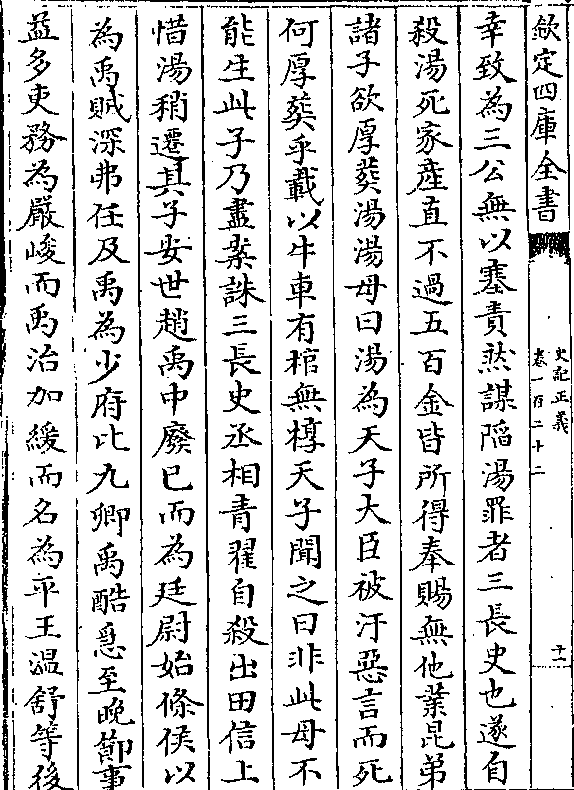 欽定四庫全書
史記正義
卷一百二十二
十一
幸致為三公無以塞責然謀陷湯罪者三長史也遂自
殺湯死家產直不過五百金皆所得奉賜無他業昆弟
諸子欲厚葬湯湯母曰湯為天子大臣被汙惡言而死
何厚葬乎載以牛車有棺無槨天子聞之曰非此母不
能生此子乃盡案誅三長史丞相青翟自殺出田信上
惜湯稍遷其子安世趙禹中廢已而為廷尉始條侯以
為禹賊深弗任及禹為少府比九卿禹酷急至晚節事
益多吏務為嚴峻而禹治加緩而名為平王溫舒等後